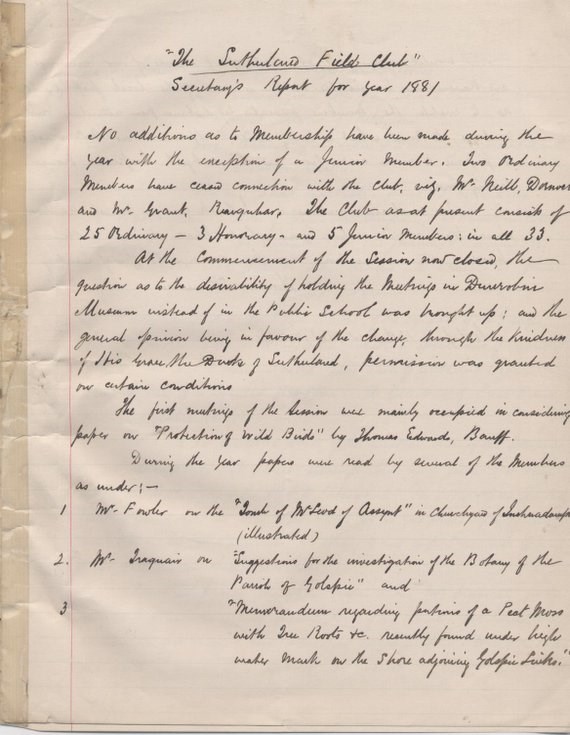 "The Sutherland Field Club"
Secretary's Report for year 1881
No additions as to Membership have been made during the
year with the exception of a Junior Member. Two Ordinary
Members have ceased connection with the Club, viz, Mr. Neill, Dornoch
and Mr. Grant, The Club as at present consists of
25 Ordinary – 3 Honorary – and 5 Junior Members: in all 33.
At the Commencement of the Session now closed, the
question as to the desirability of holding the Meetings in Dunrobin
Museum instead of in the Public School was brought up: and the
general opinion being in favour of the change, through the Kindness
of His Grace, the Duke of Sutherland, permission was granted
on certain conditions
The first meetings of the Session were mainly occupied in considering
paper on "Protection of Wild Birds" by Thomas Edward, Banff.
During the year papers were read by several of the Members
as under:—
1 Mr. Fowler on the "Tomb of McLeod of Assynt" in Churchyard of
(illustrated)
2. Mr. Traquair on "Suggestions for the investigation of the Botany of the
Parish of Golspie" and
3 "Memorandum regarding portions of a Peat Moss
with Tree Roots &c. recently found under high
water mark on the Shore adjoining Golspie Links."